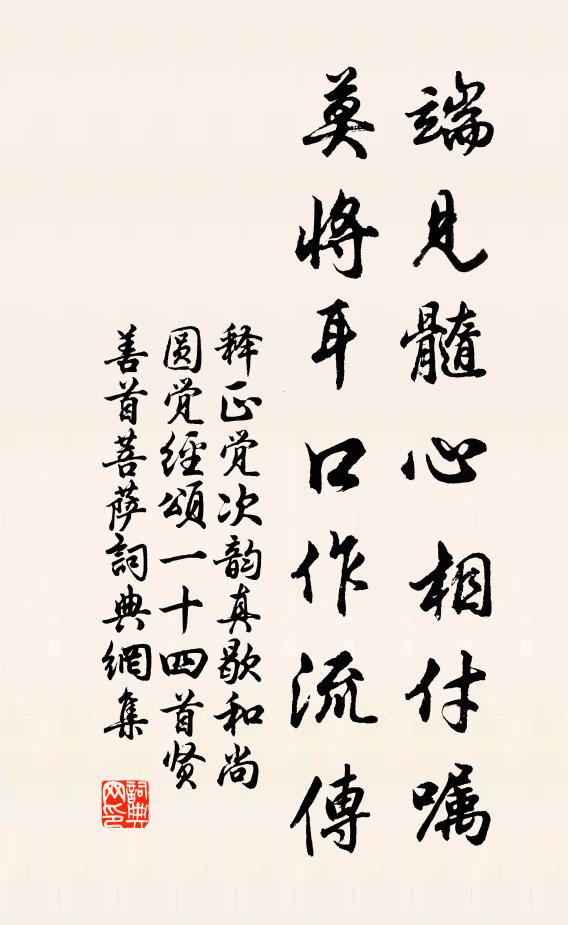 端见髓心相付嘱
莫将耳口作流傳
释正觉次韵真歇和尚
圆觉經頌一十四首贤
善首菩萨詞典網集
詞典
网印